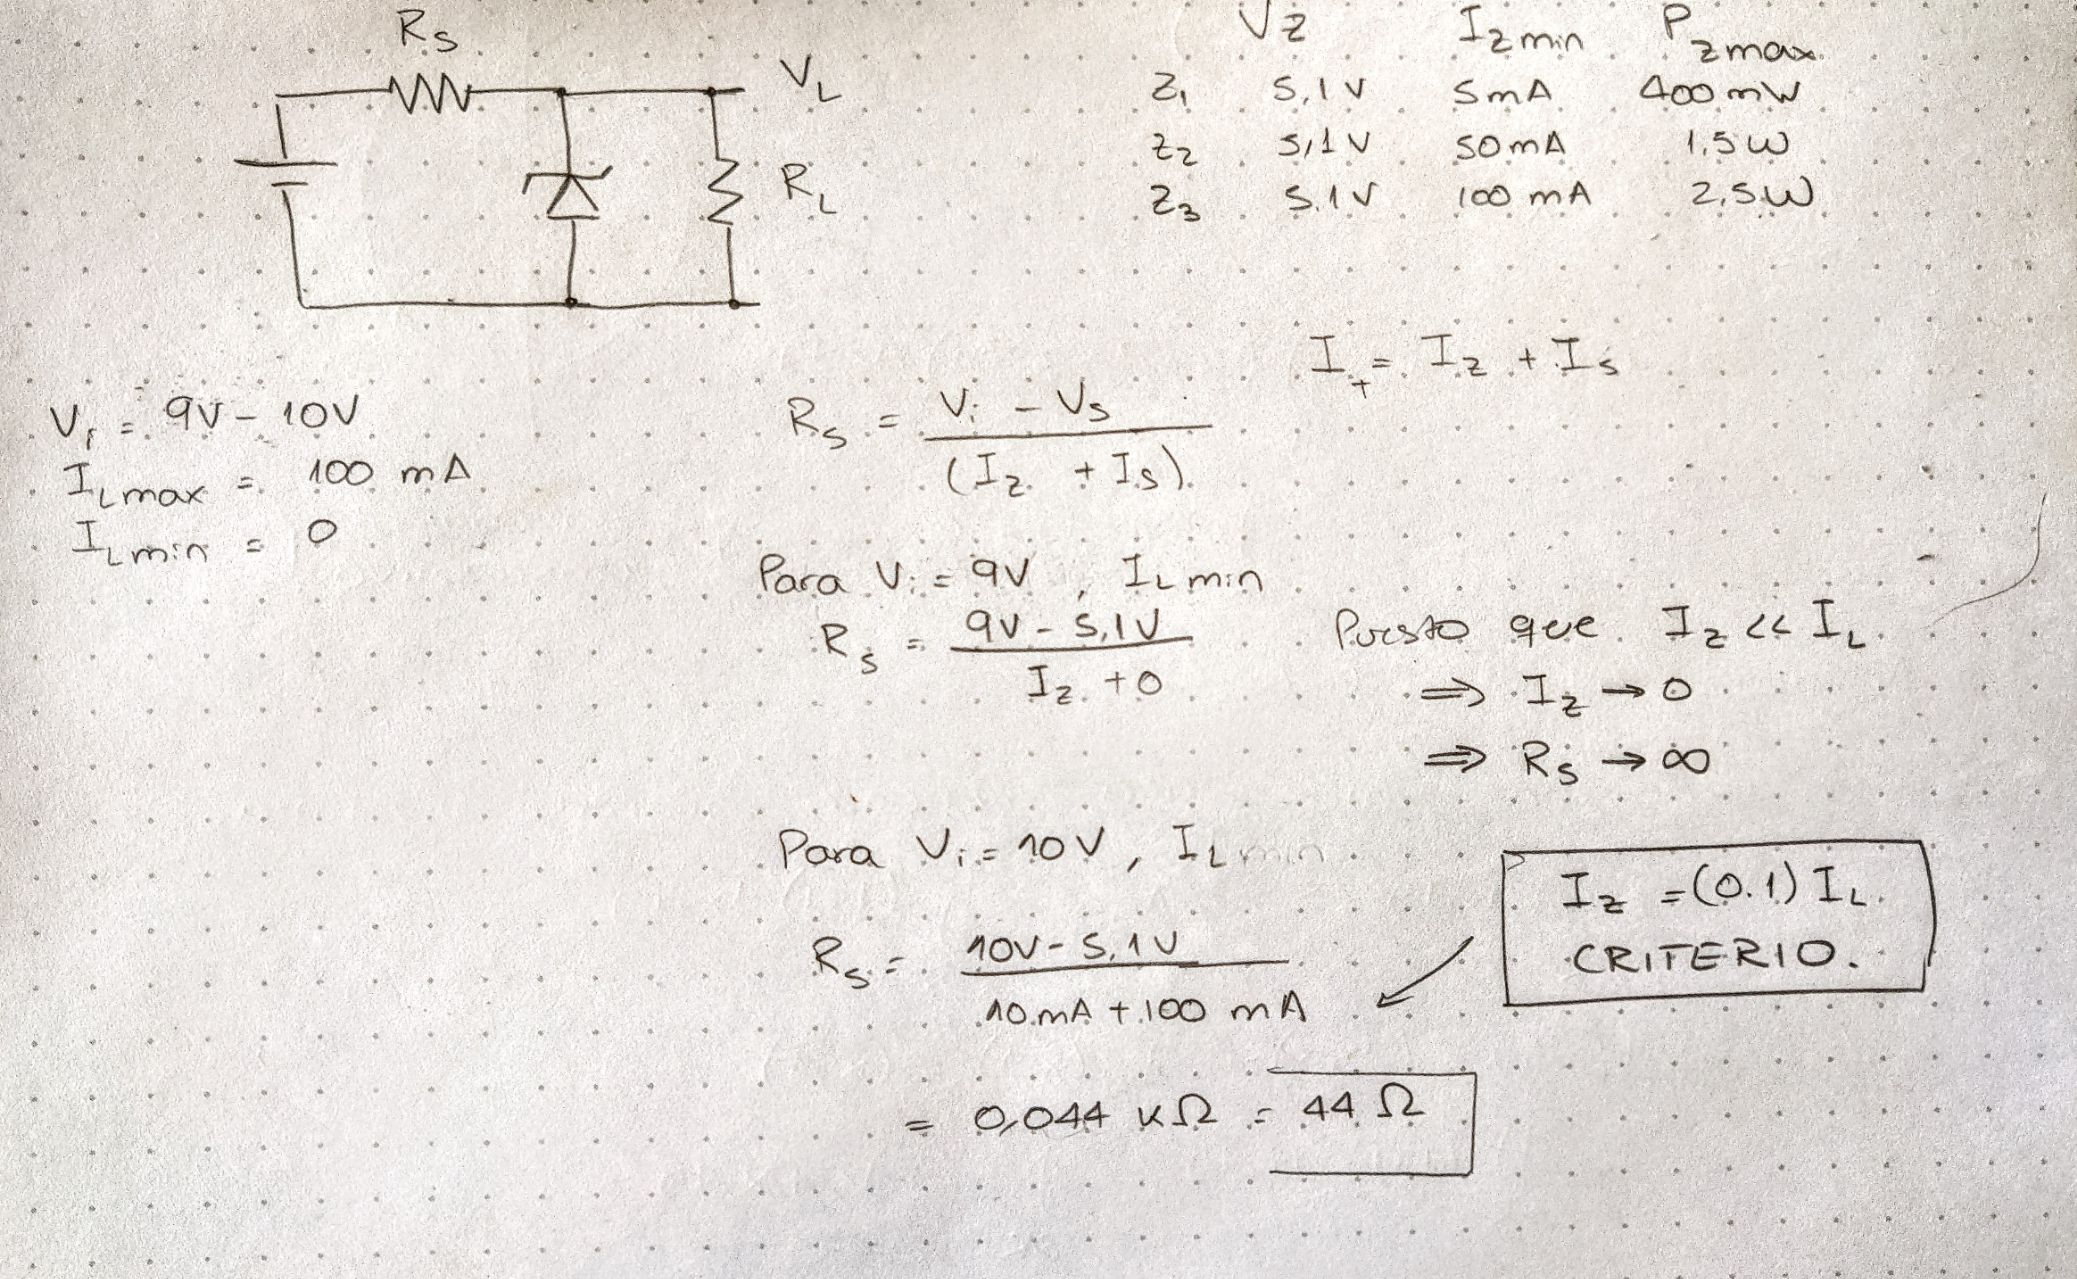 Rs
VL
RL
Vz Izmin Pzmax
Z1 5,1V 5mA 400mW
Z2 5,1V 50mA 1,5W
Z3 5.1V 100mA 2,5W
I+ = Iz + Is
Vi = 9V - 10V
ILmax = 100 mA
ILmin = 0
Rs = Vi - Vs
(Iz + Is)
Para Vi = 9V, ILmin
Rs = 9V - 5,1V
Iz + 0
Puesto que Iz << IL
⇒ Iz → 0
⇒ Rs → ∞
Para Vi = 10V, ILmin
Rs = 10V - 5,1V
10mA + 100 mA
Iz = (0.1) IL.
CRITERIO.
= 0,044 KΩ = 44 Ω